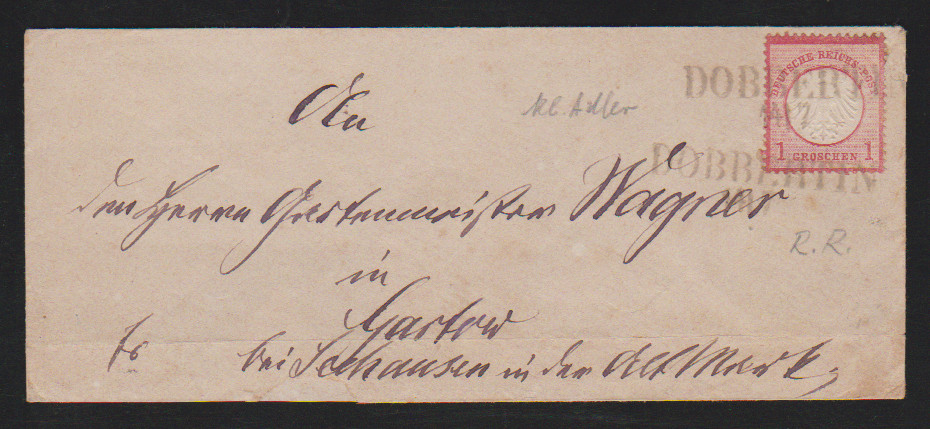 DEUTSCHE REICHS-POST
1 GROSCHEN 1
DOBBERTIN
kl. Adler
DOBBERTIN
An
den Herrn Gartenmeister Wagner
R. R.
in
Gartow
bei Seehausen in der Alt Mark.